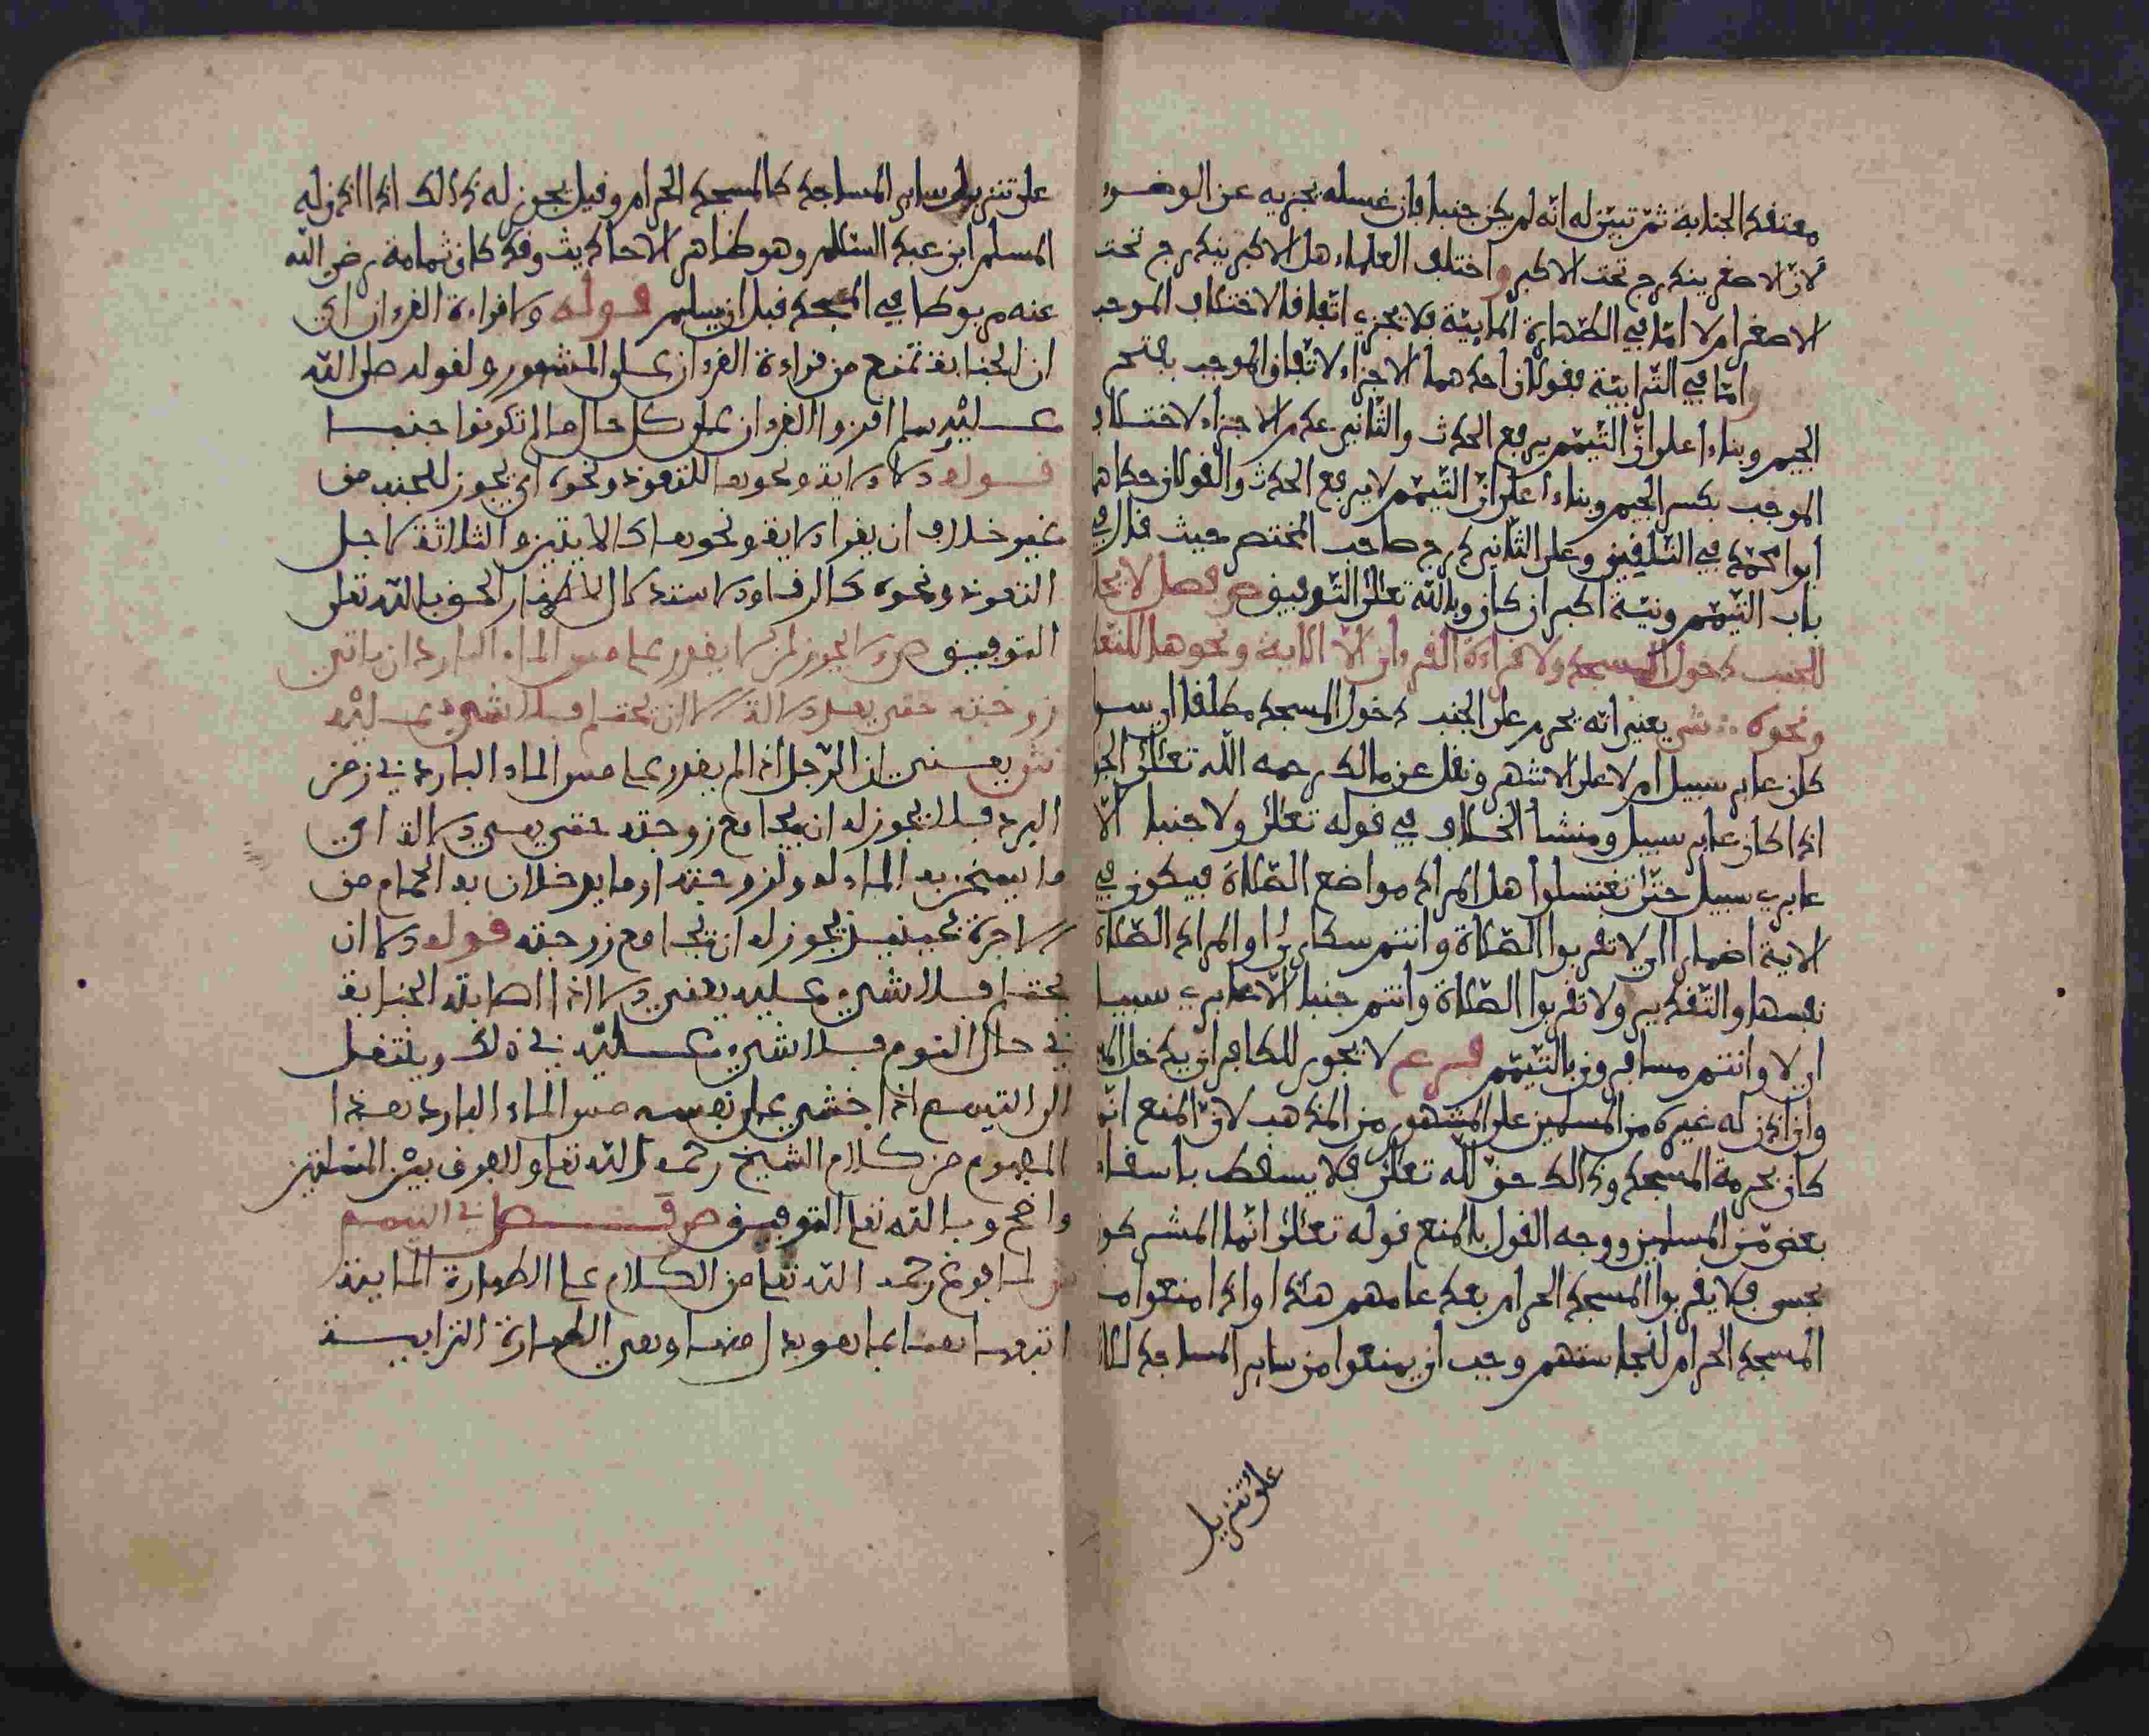 معتقد الجنابة ثمّ تبيّن له انّه لم يكن جنبا فان غسله يجزيه عن الوضوء
لانّ الاصغر يندرج تحت الاكبر واختلف العلماء هل الاكبر يندرج تحت
الاصغر ام لا امّا في الطّهارة المايّية فلا يجزي اتّفاقا لاختلاف الموجب
وامّا في التّرابيّة فقولان احدهما الاجزاء لاتّفاق الموجب بفتح
الجيم وبناءا على انّ التّيمّم يرفع الحدث والثّاني عدم الاجزاء لاختلاف
الموجب بكسر الجيم وبناءا على انّ التّيمّم لا يرفع الحدث والقولان حكاهما
ابو امحمّد في التّلقين وعلى الثّاني درج صاحب المختصر حيث قال في
باب التّيمّم ونيّة اكبر ان كان وبالله تعلى التّوفيق ص فصل لا يحل
للجنب دخول المسجد ولا قراءة القرءان الّا الاية ونحوها للتعوذ
ونحوه ش يعني انّه يحرم على الجنب دخول المسجد مطلقا اي سوا
كان عابر سبيل ام لا على الاشهر ونقل عن مالك رحمه الله تعلى الجواز
اذا كان عابر سبيل ومنشا الخلاف في قوله تعلى ولا جنبا الّا
عابري سبيل حتّى تغتسلوا هل المراد مواضع الصّلاة فيكون في
الاية اضمار اي لا تقربوا الصّلاة وانتم سكارى او المراد الصّلاة
نفسها والتّقدير ولا تقربوا الصّلاة وانتم جنبا الّا عابري سبيل
اي لا وانتم مسافرون بالتّيمّم فرع لا يجوز للكافر ان يدخل المسجد
وان اذن له غيره من المسلمين على المشهور من المذهب لانّ المنع انّما
كان بحرمة المسجد وذالك حقّ لله تعلى فلا يسقط باسقاط
بعض من المسلمين ووجه القول بالمنع قوله تعلى انّما المشركون
نجس فلا يقربوا المسجد الحرام بعد عامهم هذا واذا منعوا من
المسجد الحرام لنجاستهم وجب ان يمنعوا من ساير المساجد
على تنزيل
على تنزيل ساير المساجد كالمسجد الحرام وقيل يجوز له ذالك اذا اذن له
المسلم ابن عبد السّلام وهو ظاهر الاحاديث وقد كان ثمامة رضي الله
عنه مربوطا في المسجد قبل ان يسلم قوله ولا قراءة القرءان اي
ان الجنابة تمنع من قراءة القرءان على المشهور لقوله صلى الله
عليه وسلم اقرءوا القرءان على كل حال ما لم تكونوا جنبا
قوله الا الاية ونحوها للتعوذ ونحوه اي يجوز للجنب من
غير خلاف ان يقرا الاية ونحوها كالايتين والثلاثة لاجل
التعوذ ونحوه كالرقا والاستدلال الحق بالله تعلى
التوفيق ص ولا يجوز لمن لا يقدر على مس الماء البارد ان ياتي
زوجته حتى يعد الالة الا ان يحتلم فلا شيء عليه
ش يعني ان الرّجل اذا لم يقدر على مس الماء البارد في زمن
البرد فلا يجوز له ان يجامع زوجته حتى يهيئ الالة اي
ما يسخن به الماء له ولزوجته او ما يدخلان به الحمام من
الاجرة فحينئذ يجوز له ان يجامع زوجته قوله الا ان
يحتلم فلا شيء عليه يعني الا اذا اصابته الجنابة
في حال النوم فلا شيء عليه في ذلك وينتقل
الى التيمم اذا خشي على نفسه مس الماء البارد هذا
المفهوم من كلام الشيخ رحمه الله تعلى والفرق بين المسئلتين
واضح وبالله تعلى التوفيق ص فصل في التيمم
ش لما فرغ رحمه الله تعلى من الكلام على الطهارة المايية
اتبعها بما هو بدل منها وهي الطهارة الترابية